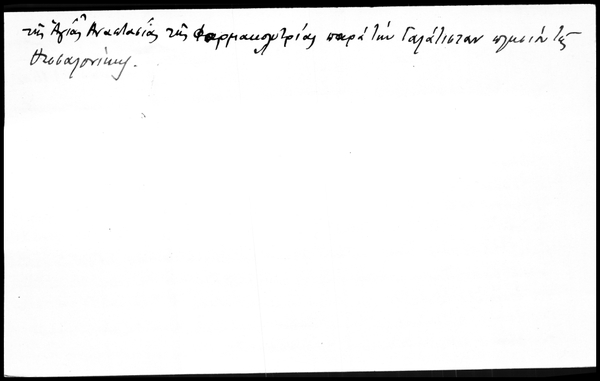 τῆς Ἁγίας Ἀναστασίας τῆς Φαρμακολυτρίας παρὰ τὴν Γαλάτισταν πλησίον τῆς
Θεσσαλονίκης.